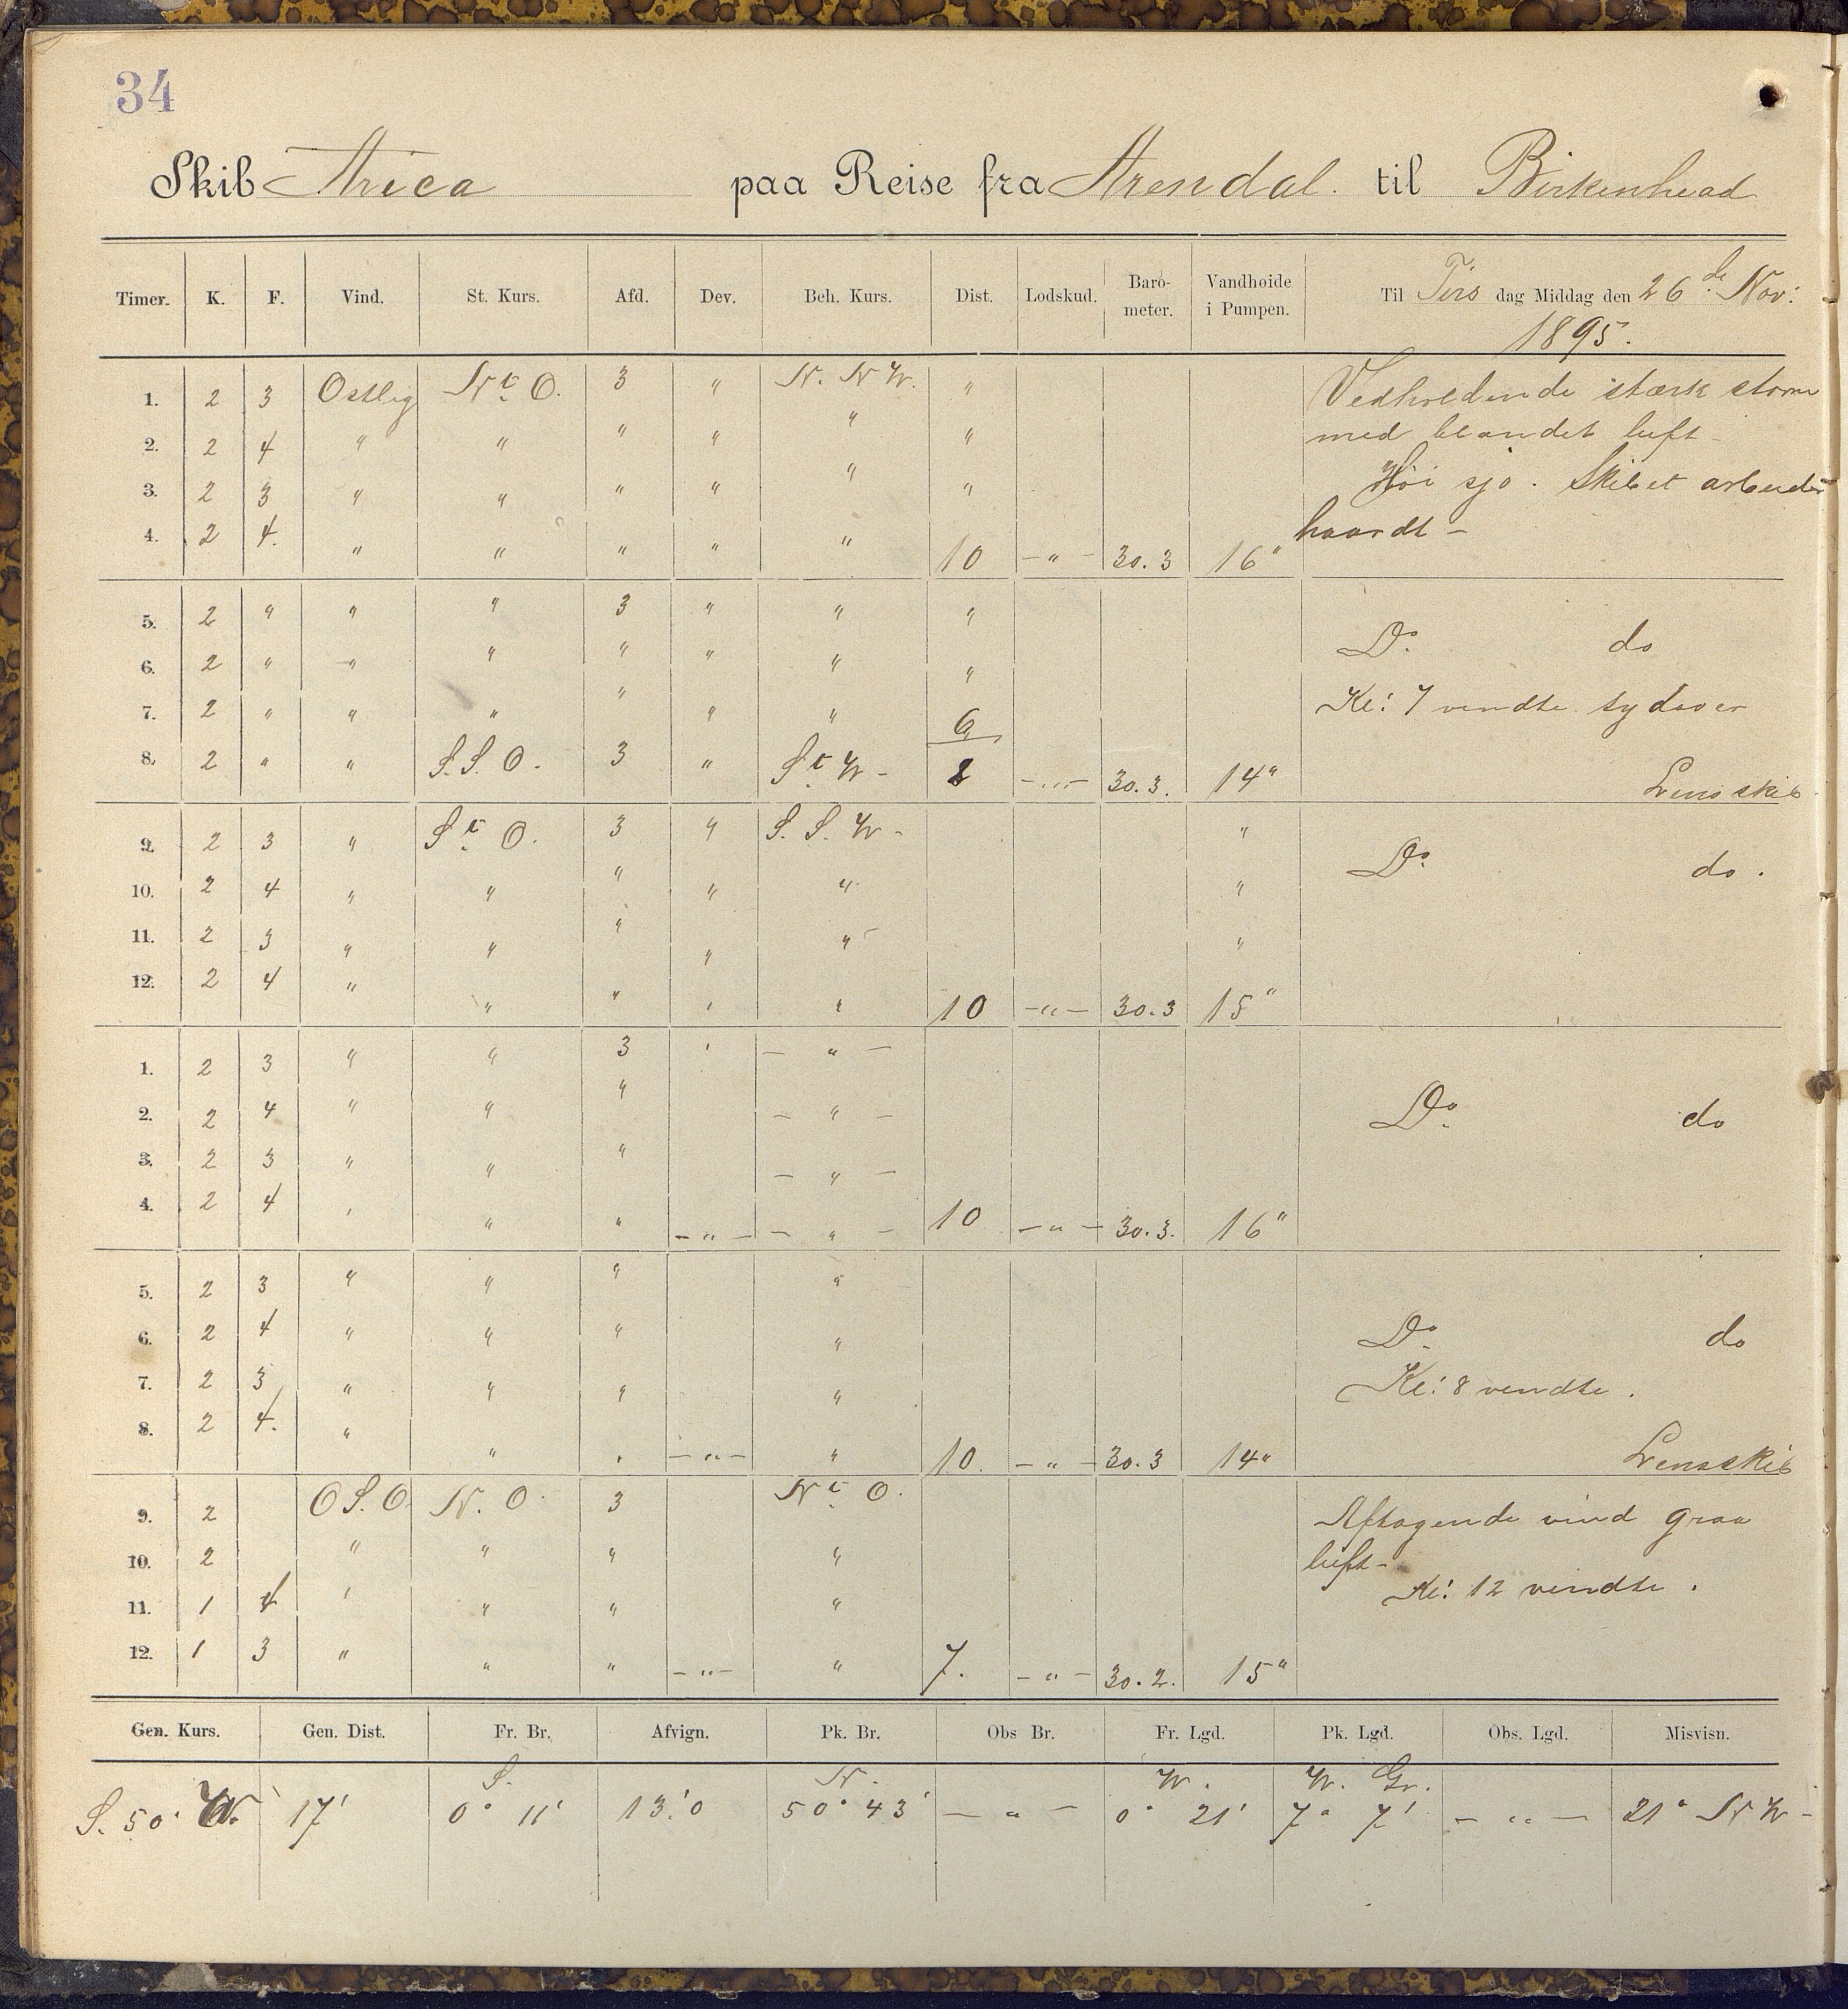 34
Skib Arica paa Reise fra Arendal. til Birkenhead
Timer. K. F. Vind. St. Kurs. Afd. Dev. Beh. Kurs. Dist. Lodskud. Baro-meter. Vandhoide i Pumpen. Til Tirs dag Middag den 26de Nov: 1895.
1. 2 3 Ostlig N t O. 3 " N. N W. " Vedholdende stærk storm
2. 2 4 " " " " " " med blandet luft -
3. 2 3 " " " " " " Høi sjø. Skibet arbeider
4. 2 4. " " " " " 10 - " - 30.3 16" haardt -
5. 2 " " " 3 " " " Do. do
6. 2 " " " " " " "
7. 2 " " " " " " 6 Kl: 7 vendte sydover
8. 2 " " S. S. O. 3 " S t W - 2 - " - 30.3. 14" Lensskib
9. 2 3 " S t O. 3 " S. S. W - " Do. do.
10. 2 4 " " " " " "
11. 2 3 " " " " " "
12. 2 4 " " " " " 10 - " - 30.3 15"
1. 2 3 " " 3 " - " -
2. 2 4 " " " - " - Do. do
3. 2 3 " " " - " -
4. 2 4 " " " - " - - " - 10 - " - 30.3. 16"
5. 2 3 " " " "
6. 2 4 " " " " Do. do
7. 2 3 " " " " Kl: 8 vendte.
8. 2 4. " " " - " - " 10. - " - 30.3 14" Lensskib
9. 2 O S. O. N. O. 3 N t O. Aftagende vind graa
10. 2 " " " " luft -
11. 1 4 " " " " Kl: 12 vendte.
12. 1 3 " " " - " - " 7. - " - 30.2. 15"
Gen. Kurs. Gen. Dist. Fr. Br. Afvign. Pk. Br. Obs Br. Fr. Lgd. Pk. Lgd. Obs. Lgd. Misvisn.
S. N. W. W. Gr.
S. 50° W. 17' 0° 11' 13'.0 50° 43' - " - 0° 21' 7° 7' - " - 21° N W -